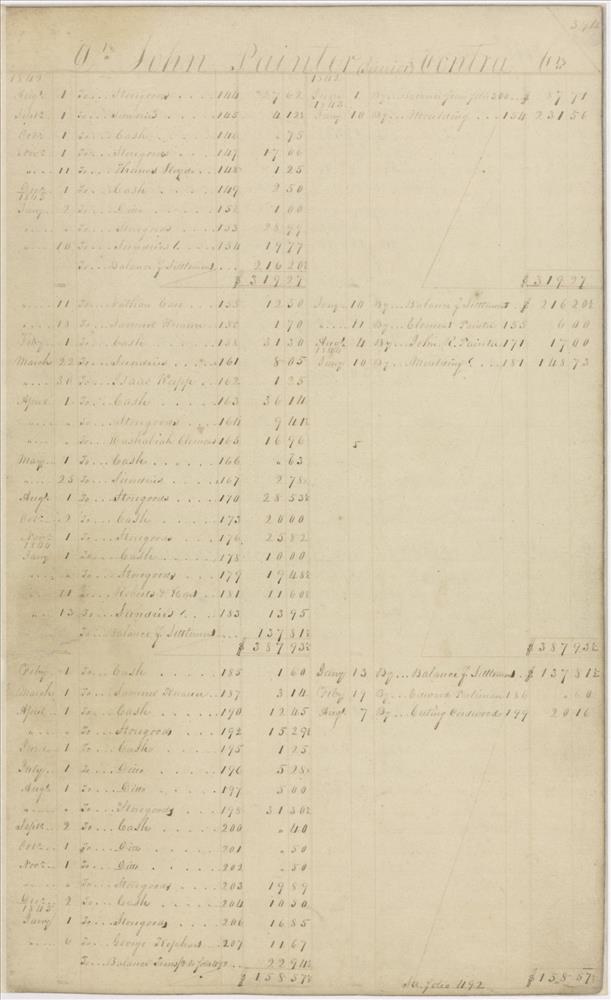 Dr John Painter (Junior) Contra Cr
1842 1842
Augt 1 To Storegoods 144 Augt 1 By 200 $ 87 71
1843
Septr 1 To Sundries 145 4 12½ Jany 10 By Moulding 154 231 56
Octr 1 To Cash 146 " 75
Novr 1 To Storegoods 147 17 06
" 11 To Thomas Lloyd 148 1 25
Decr 1 To Cash 149 2 50
1843
Jany 2 To Ditto 152 1 00
" " To Storegoods 153 28 99
" 10 To Sundries 154 19 77
To Balance of Settlement 216 20½
$ 319 27 $ 319 27
" 11 To Nathan Coes 155 12 50 Jany 10 By Balance of Settlement $ 216 20½
" 13 To Samuel 155 1 70 " 11 By Clement Painter 155 6 00
Feby 1 To Cash 158 31 30 Augt 4 By John R. Painter 171 17 00
1844
March 22 To Sundries 161 8 05 Jany 10 By Moulding 181 148 73
" 30 To Isaac 162 1 25
April 1 To Cash 163 36 14
" " To Storegoods 164 9 41½
" " To Hashabiah Clemens 165 16 96 5
May 1 To Cash 166 " 63
" 25 To Sundries 167 2 78½
Augt 1 To Storegoods 170 28 53½
Octr 2 To Cash 173 20 00
Novr 1 To Storegoods 176 25 82
1844
Jany 1 To Cash 178 10 00
" " To Storegoods 179 19 48½
" 11 To Roberts & 181 11 60½
" 13 To Sundries 183 13 95
To Balance of Settlement 137 81½
$ 387 93½ $ 387 93½
Feby 1 To Cash 185 1 60 Jany 13 By Balance of Settlement $ 137 81½
March 1 To Samuel 187 3 14 Feby 19 By Edward 186 " 60
April 1 To Cash 190 12 45 Augt 7 By Cutting Cordwood 199 20 16
" " To Storegoods 192 15 29½
June 1 To Cash 195 1 25
July 1 To Ditto 196 5 28½
Augt 1 To Ditto 197 5 00
" " To Storegoods 198 31 30½
Septr 2 To Cash 200 " 40
Octr 1 To Ditto 201 " 50
Novr 1 To Ditto 202 " 50
" " To Storegoods 203 19 89
Decr 2 To Cash 204 10 30
1845
Jany 1 To Storegoods 206 16 85
" 6 To George 207 11 67
To Balance Transfd to folio 492 22 94½
$ 158 57½ folio 492 $ 158 57½